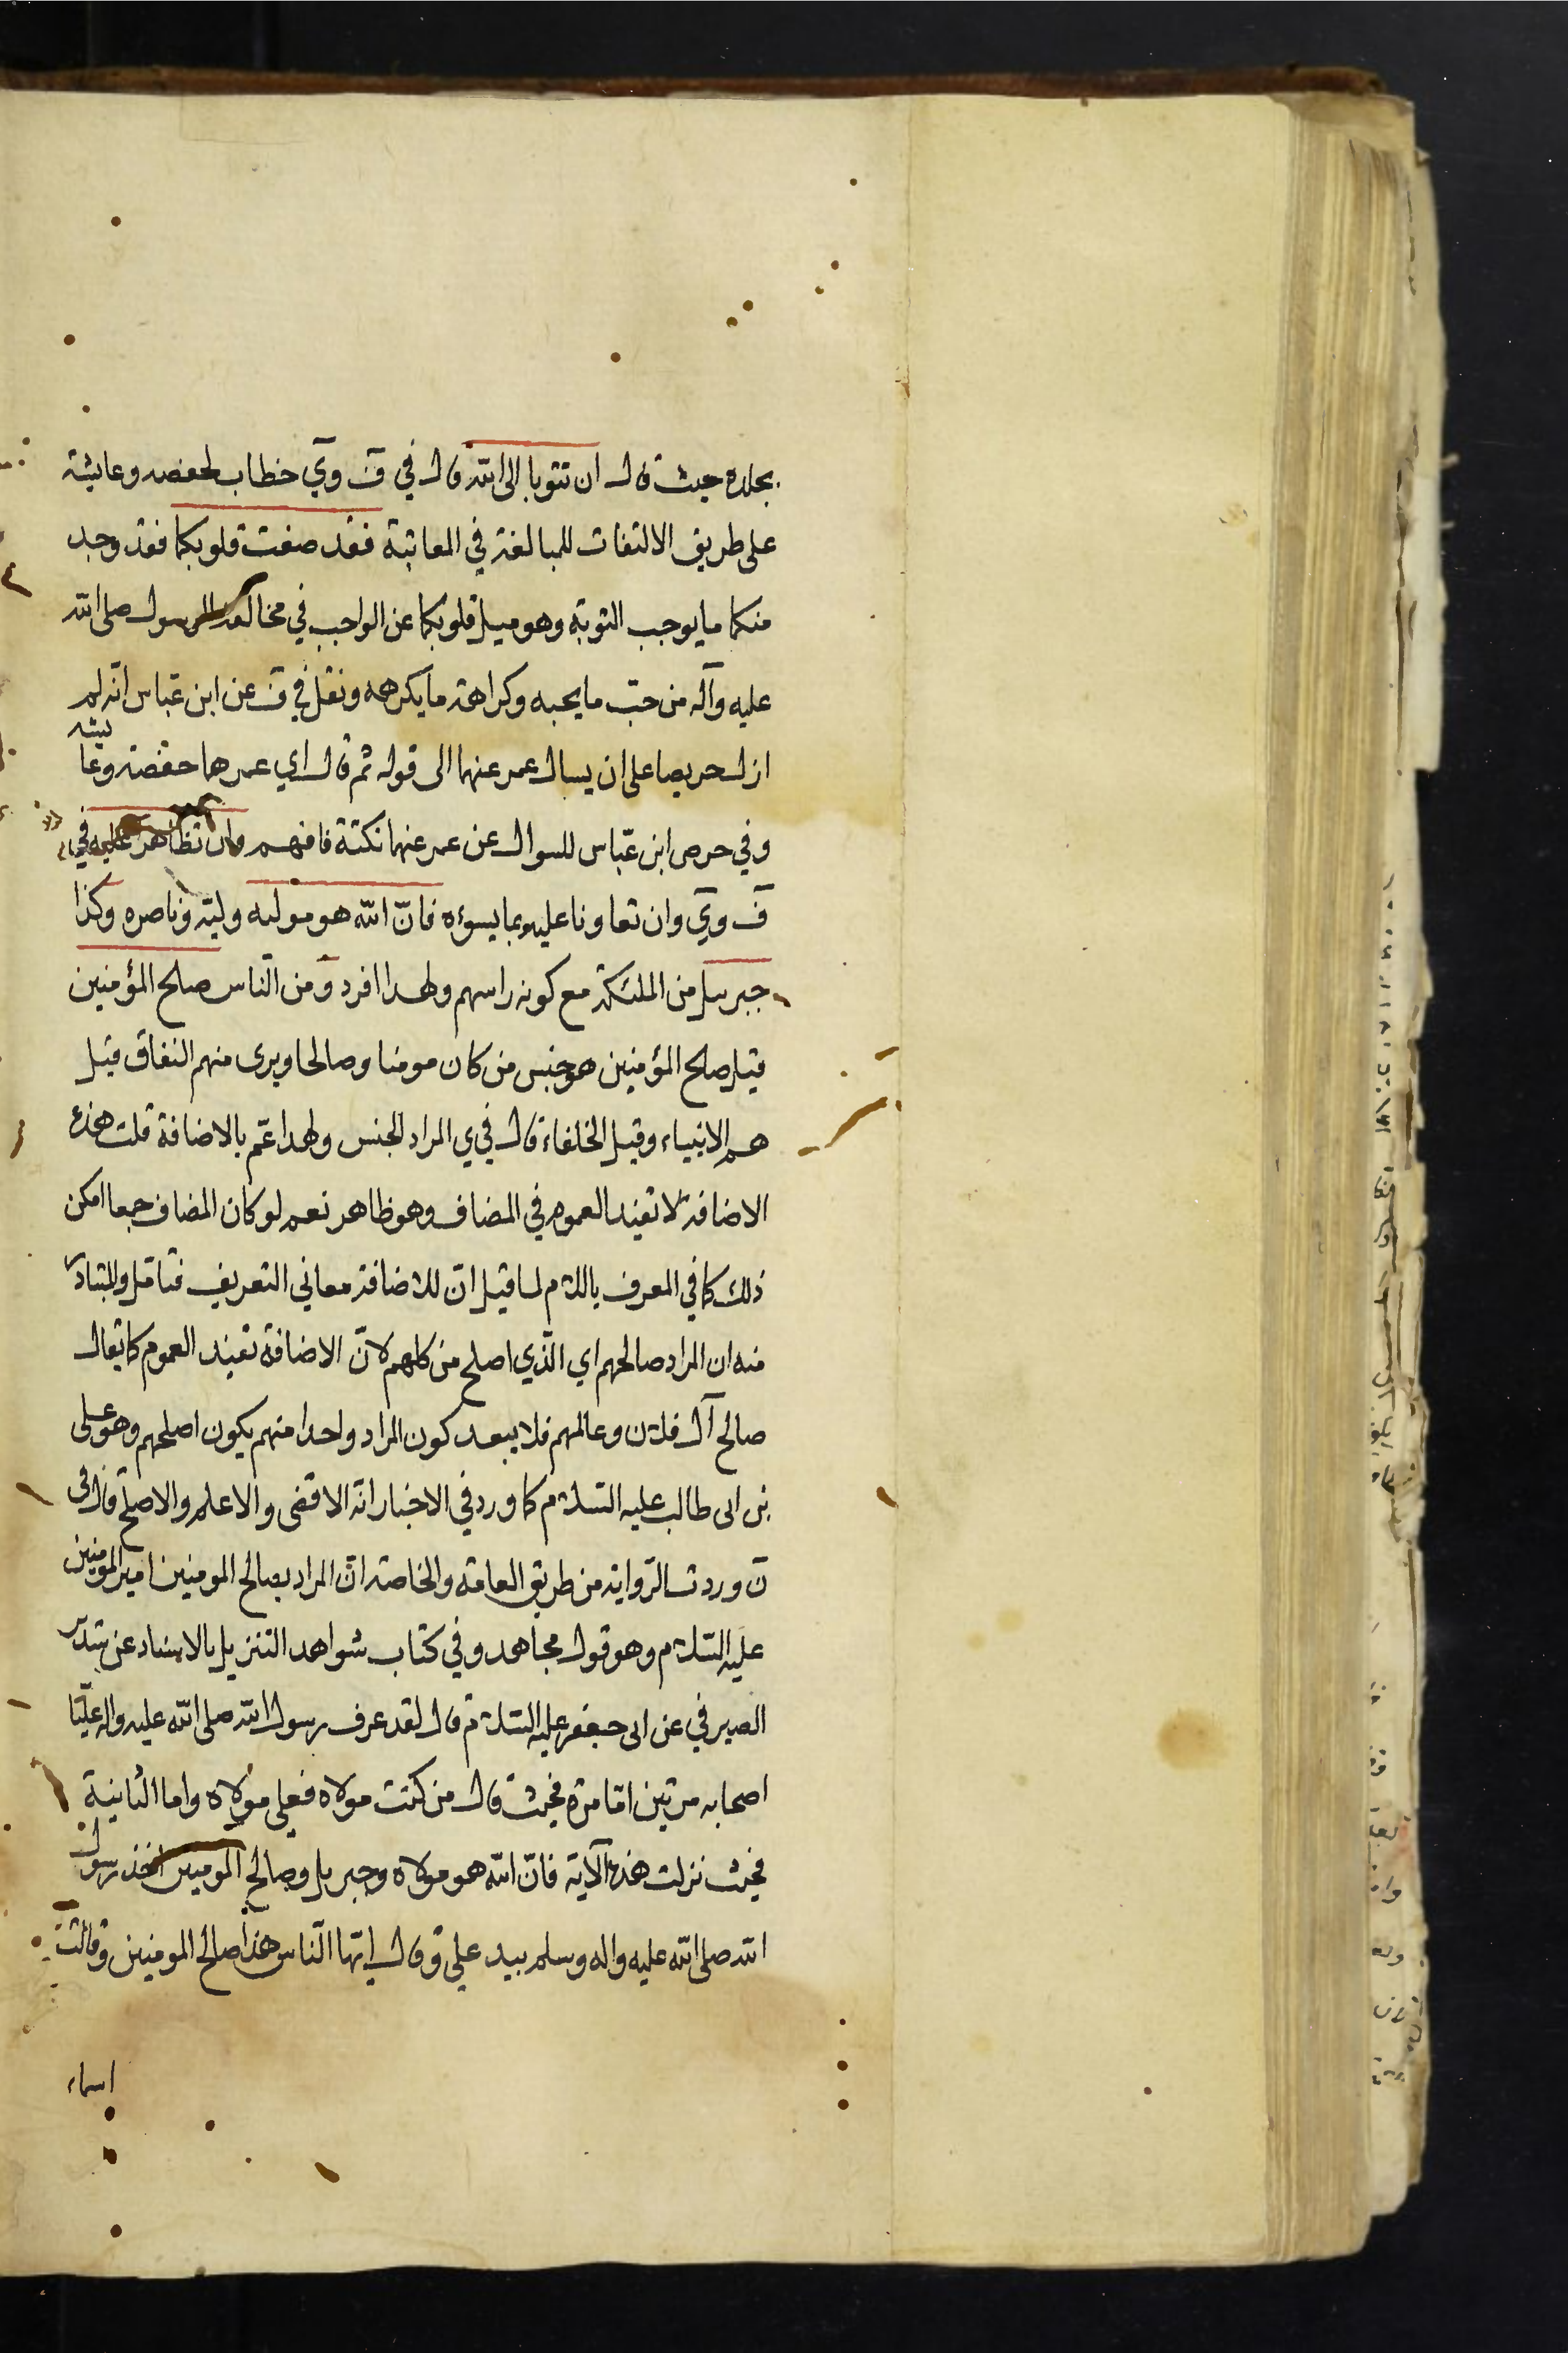 بعده حيث قال ان تتوبا الى الله قال في ف وي خطاب لحفصه وعايشة
على طريق الالتفات للمبالغة في المعاتبة فقد صغت قلوبكما فقد وجد
منكما ما يوجب التوبة وهو ميل قلوبكما عن الواجب في مخالفة الرسول صلى الله
عليه وآله من حبّ ما يحبه وكراهة ما يكرهه ونقل في ف عن ابن عبّاس انه لم
ازل حريصا على ان يسال عمر عنهما الى قوله ثم قال اي عمر هما حفصة وعايشه
وفي حرص ابن عبّاس للسوال عن عمر عنهما نكتة فافهم وان تظاهر عليه في
ف وي وان تعاونا عليه بما يسوءه فانّ الله هو موليه وليّه وناصره وكذا
جبريل من الملئكة مع كونه راسهم ولهذا افرد ومن النّاس صلح المؤمنين
قيل صلح المؤمنين هو جنس من كان مومنا وصالحا وبرى منهم النفاق قيل
هم الانبياء وقيل الخلفاء قال في ي المراد الجنس ولهذا عمّ بالاضافة قلت هذه
الاضافة لا تفيد العموم في المضاف وهو ظاهر نعم لو كان المضاف جمعا امكن
ذلك كما في المعرف باللام لما قيل انّ للاضافة معاني التعريف فتامّل والمتبادر
منه ان المراد صالحهم اي الّذي اصلح من كلهم لانّ الاضافة تفيد العموم كما يقال
صالح آل فلان وعالمهم فلا يبعد كون المراد واحدا منهم يكون اصلحهم وهو على
بن ابى طالب عليه السّلام كما ورد في الاخبار انه الاقضى والاعلم والاصلح قال فى
ن وردت الرّواية من طريق العامة والخاصة انّ المراد بصالح المومنين امير المومنين
عليه السّلام وهو قول مجاهد وفي كتاب شواهد التنزيل بالاسناد عن سدير
الصيرفي عن ابى جعفر عليه السّلام قال لقد عرف رسول الله صلى الله عليه واله عليّا
اصحابه مرتين امّا مرة فحيث قال من كنت مولاه فعلي مولاه واما الثانية
فحيث نزلت هذه الآية فانّ الله هو مولاه وجبريل وصالح المومنين اخذ رسول
الله صلى الله عليه واله وسلم بيد علي ع وقال ايّها النّاس هذا صالح المومنين وقالت
اسماء